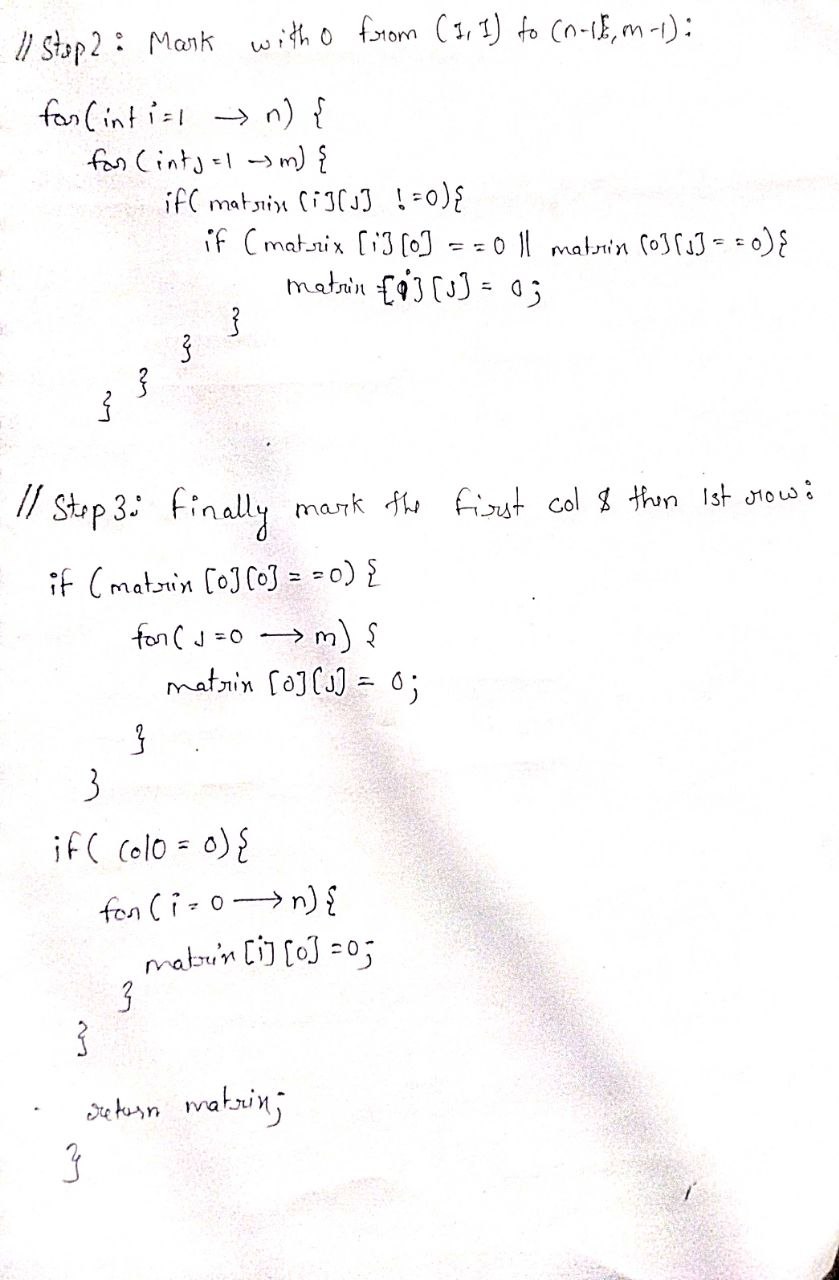 // Step 2 : Mark with 0 from (1,1) to (n-1, m-1):
for(int i=1 → n) {
for(int j=1 → m) {
if( matrix [i][j] !=0){
if (matrix [i][0] ==0 || matrix [0][j]==0){
matrix [i][j] = 0;
}
}
}
}
// Step 3: Finally mark the first col & then 1st row:
if (matrix [0][0]==0) {
for( j=0 → m) {
matrix [0][j] = 0;
}
}
if( col0 = 0){
for(i=0 → n){
matrix [i][0] =0;
}
}
return matrix;
}